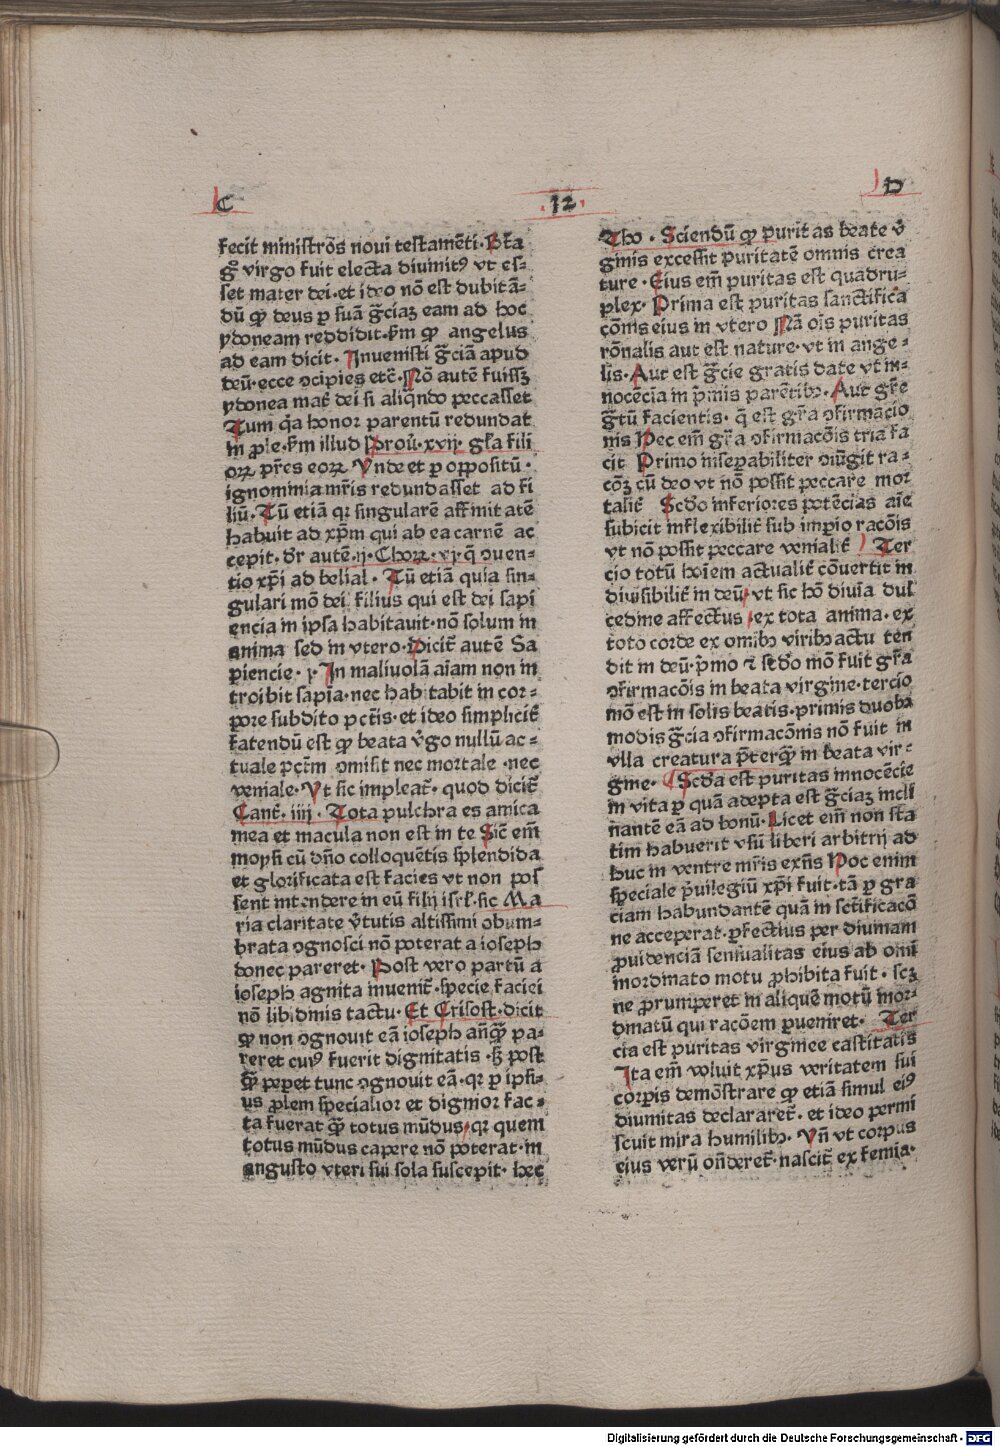 C
12
D
fecit ministrōs noui testamēti. Bt̄a
gͦ virgo fuit electa diuinitꝰ vt es-
set mater dei. et ideo nō est dubitā-
dū ꝙ deus ꝑ suā gr̄ciaꝫ eam ad hoc
ydoneam reddidit. ẜm ꝙ angelus
ad eam dicit. Inuenisti gr̄ciā apud
deū. ecce ↄcipies etc̄. Nō autē fuissꝫ
ydonea mat̄ dei si aliqn̄do peccasset
Tum qͣ honor parentū redundat
in ꝓle. ẜm illud Prou̅. xvij. gl̄a fili
oꝝ pr̄es eoꝝ Vnde et ꝑ oppositū.
ignominia mr̄is redundasset ad fi
liū. Tū etiā qꝛ singularē affinitatē
habuit ad xp̄m qui ab ea carnē ac
cepit. dr̄ autē. ij. Choꝝ. vj. q̄ ↄuen-
tio xp̄i ad belial. Tū etiā quia sin-
gulari mō dei filius qui est dei sapi
encia in ipsa habitauit. nō solum in
anima sed in vtero. Dicit᷑ autē Sa
piencie. j. In maliuolā aīam non in
troibit sapīa. nec habitabit in cor-
pore subdito pctīs. et ideo simplicit᷑
fatendū est ꝙ beata v̄go nullū ac-
tuale pctm̄ ↄmisit nec mortale. nec
veniale. Vt sic impleat᷑. quod dicit᷑
Cant᷑. iiij. Tota pulchra es amica
mea et macula non est in te Sic̄ em̄
moysi cū dn̄o colloquētis splendida
et glorificata est facies vt non pos
sent intendere in eū filij isrl̄. sic Ma
ria claritate v̄tutis altissimi obum-
brata ↄgnosci nō poterat a ioseph
donec pareret. Post vero partū a
ioseph agnita inuenit᷑. specie faciei
nō libidinis tactu. Et Crisost. dicit
ꝙ non ↄgnouit eā ioseph an̄qͣꝫ pa-
reret cuiꝰ fuerit dignitatis. sꝫ post
qͣꝫ peꝑet tunc ↄgnouit eā. qꝛ ꝑ ipsi-
us ꝓlem specialior et dignior fac-
ta fuerat qͣꝫ totus mūdus. qꝛ quem
totus mūdus capere nō poterat. in
angusto vteri sui sola suscepit. hec
Tho. Sciendū ꝙ puritas beate v̄
ginis excessit puritatē omnis crea
ture. Eius em̄ puritas est quadru-
plex. Prima est puritas sanctifica
cōnis eius in vtero Nā oīs puritas
rōnalis aut est nature. vt in ange-
lis. Aut est gr̄cie gratis date vt in-
nocēcia in p̄mis parētibꝫ. Aut gr̄e
gͣtū facientis. q̄ est gr̄a ↄfirmacio
nis Hec em̄ gr̄a ↄfirmacōis tria fa
cit Primo insepabiliter ↄiūgit ra-
cōꝫ cū deo vt nō possit peccare mor
talit᷑ Scd̄o inferiores potēcias aīe
subicit inflexibilit᷑ sub imꝑio racōis
vt nō possit peccare venialit᷑ Ter
cio totū hoīem actualit᷑ cōuertit in
diuisibilit᷑ in deū. vt sic hō diuīa dul
cedine affectus. ex tota anima. ex
toto corde ex omibꝫ viribꝫ actu ten
dit in deū. p̄mo ⁊ scd̄o mō fuit gr̄a
ↄfirmacōis in beata virgine. tercio
mō est in solis beatis. primis duobꝫ
modis gr̄cia ↄfirmacōnis nō fuit in
vlla creatura p̄terqͣꝫ in beata vir-
gine. Scd̄a est puritas innocēcie
in vita ꝑ quā adepta est gr̄ciaꝫ incli
nantē eā ad bonū. Licet em̄ non sta
tim habuerit vsū liberi arbitrij ad
huc in ventre mr̄is exn̄s Hoc enim
speciale p̄uilegiū xp̄i fuit. tā ꝑ gra
ciam habundantē quā in sct̄ificacō
ne acceperat. ꝑfectius per diuinam
ꝓuidenciā sensualitas eius ab omī
inordinato motu ꝓhibita fuit. scꝫ
ne ꝓrumperet in aliquē motū inor-
dinatū qui racōem ꝑueniret. Ter
cia est puritas virginee castitatis
Ita em̄ voluit xp̄us veritatem sui
corꝑis demōstrare ꝙ etiā simul eiꝰ
diuinitas declararet᷑. et ideo permi
scuit mira humilibꝫ. Vn̄ vt corpus
eius verū on̄deret᷑. nascit᷑ ex femīa.
Digitalisierung gefördert durch die Deutsche Forschungsgemeinschaft - DFG